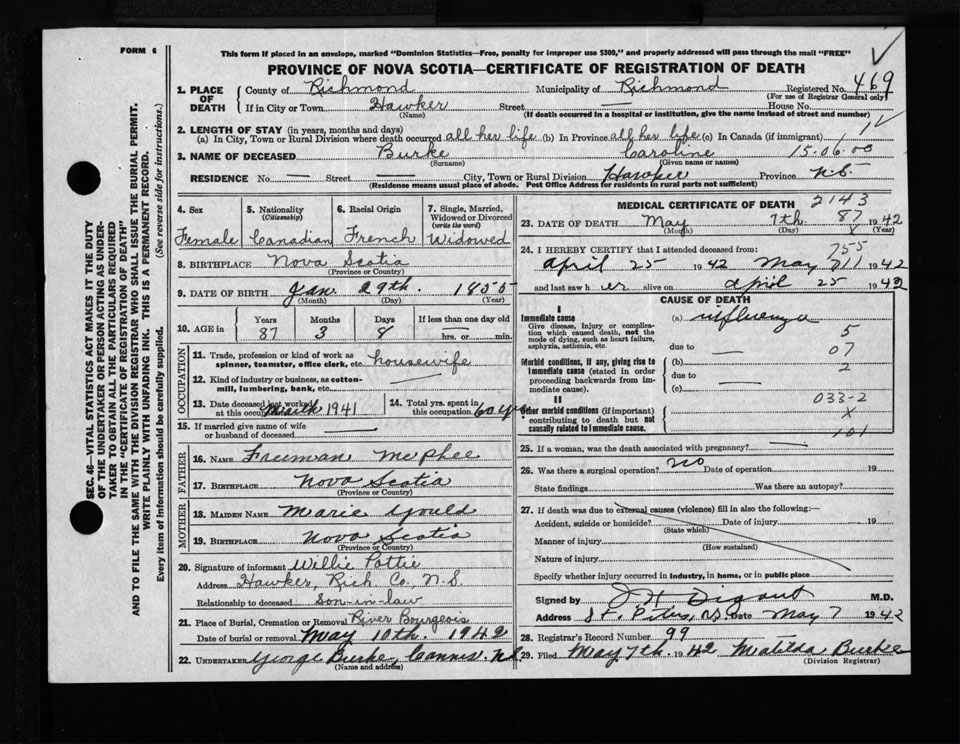 FORM 6
This form if placed in an envelope, marked "Dominion Statistics—Free, penalty for improper use $300," and properly addressed will pass through the mail "FREE"
PROVINCE OF NOVA SCOTIA—CERTIFICATE OF REGISTRATION OF DEATH
SEC. 46—VITAL STATISTICS ACT MAKES IT THE DUTY
OF THE UNDERTAKER OR PERSON ACTING AS UNDER-
TAKER TO OBTAIN ALL THE PARTICULARS REQUIRED
IN THE "CERTIFICATE OF REGISTRATION OF DEATH"
AND TO FILE THE SAME WITH THE DIVISION REGISTRAR WHO SHALL ISSUE THE BURIAL PERMIT.
WRITE PLAINLY WITH UNFADING INK. THIS IS A PERMANENT RECORD.
Every item of Information should be carefully supplied. (See reverse side for instructions.)
1. PLACE OF DEATH County of Richmond Municipality of Richmond Registered No. 469
(For use of Registrar General only)
If in City or Town Hawker Street — House No.
(Name) (If death occurred in a hospital or institution, give the name instead of street and number)
2. LENGTH OF STAY (in years, months and days)
(a) In City, Town or Rural Division where death occurred all her life (b) In Province all her life (c) In Canada (if immigrant)
3. NAME OF DECEASED Burke Caroline 15-06.00
(Surname) (Given name or names)
RESIDENCE No. — Street — City, Town or Rural Division Hawker Province N.S.
(Residence means usual place of abode. Post Office Address for residents in rural parts not sufficient)
4. Sex Female
5. Nationality (Citizenship) Canadian
6. Racial Origin French
7. Single, Married, Widowed or Divorced (write the word) Widowed
8. BIRTHPLACE Nova Scotia
(Province or Country)
9. DATE OF BIRTH Jan. 29th. 1855
(Month) (Day) (Year)
10. AGE in Years 87 Months 3 Days 8 If less than one day old hrs. or min.
OCCUPATION
11. Trade, profession or kind of work as spinner, teamster, office clerk, etc. housewife
12. Kind of industry or business, as cotton-mill, lumbering, bank, etc. —
13. Date deceased last worked at this occupation March 1941
14. Total yrs. spent in this occupation 60 yrs
15. If married give name of wife or husband of deceased —
FATHER
16. NAME Freeman McPhee
17. BIRTHPLACE Nova Scotia
(Province or Country)
MOTHER
18. MAIDEN NAME Marie Gould
19. BIRTHPLACE Nova Scotia
(Province or Country)
20. Signature of informant Willie Pottie
Address Hawker Rich Co. N.S.
Relationship to deceased Son-in-law
21. Place of Burial, Cremation or Removal River Bourgeois
Date of burial or removal May 10th. 1942
22. UNDERTAKER George Burke, Cannes. N.S.
(Name and Address)
MEDICAL CERTIFICATE OF DEATH 2143
23. DATE OF DEATH May 7th 87 1942
(Month) (Day) X (Year)
24. I HEREBY CERTIFY that I attended deceased from: 755
April 25 1942 May 7 1942
and last saw her alive on April 25 1942
CAUSE OF DEATH
I
Immediate cause (a) influenza
Give disease, injury or complication which caused death, not the mode of dying, such as heart failure, asphyxia, asthenia, etc. 5
due to — 07
Morbid conditions, if any, giving rise to immediate cause (stated in order proceeding backwards from immediate cause). (b) 2
due to —
(c)
II 033-2
Other morbid conditions (if important) contributing to death but not causally related to immediate cause. X
101
25. If a woman, was the death associated with pregnancy? —
26. Was there a surgical operation? no Date of operation 19
State findings Was there an autopsy?
27. If death was due to external causes (violence) fill in also the following:—
Accident, suicide or homicide? Date of injury 19
(State which)
Manner of injury
(How sustained)
Nature of injury
Specify whether injury occurred in industry, in home, or in public place
Signed by J H Digout M.D.
Address St. Peters, N.S. Date May 7 1942
28. Registrar's Record Number 99
29. Filed May 7th. 1942 Matilda Burke
(Division Registrar)